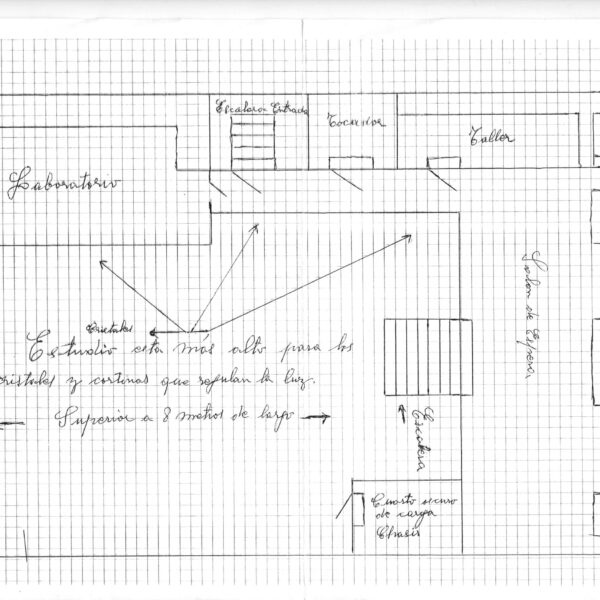 Escalera Entrada
Tocador
Taller
Laboratorio
Salon de Espera
Cristales
Estudio está más alto para los
cristales y cortinas que regulan la luz.
Superior a 8 metros de largo
Escalera
Cuarto oscuro
de carga
Chasis